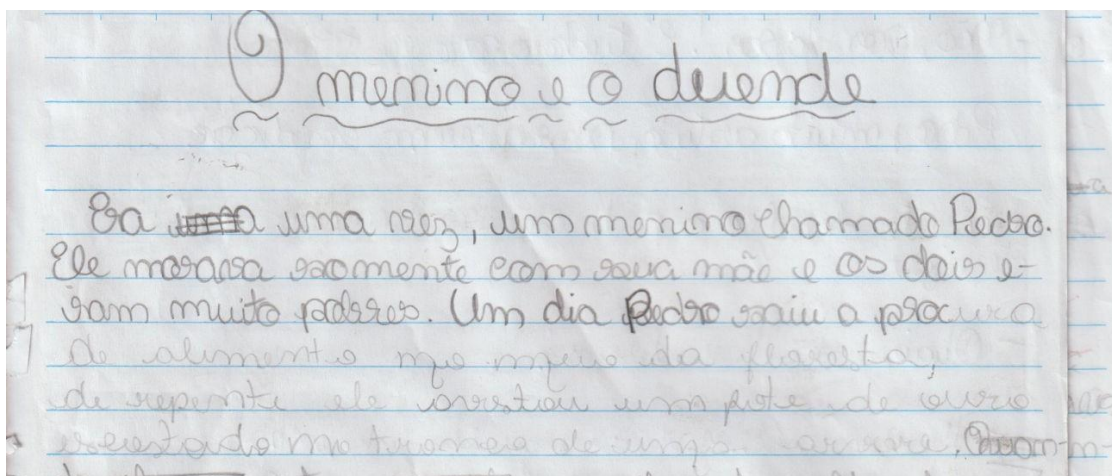 O menino e o duende
Era uma vez, um menino chamado Pedro.
Ele morava somente com sua mãe e os dois e-
ram muito pobres. Um dia Pedro saiu a procura
de alimento no meio da floresta,
de repente ele avistou um pote de ouro
no de uma